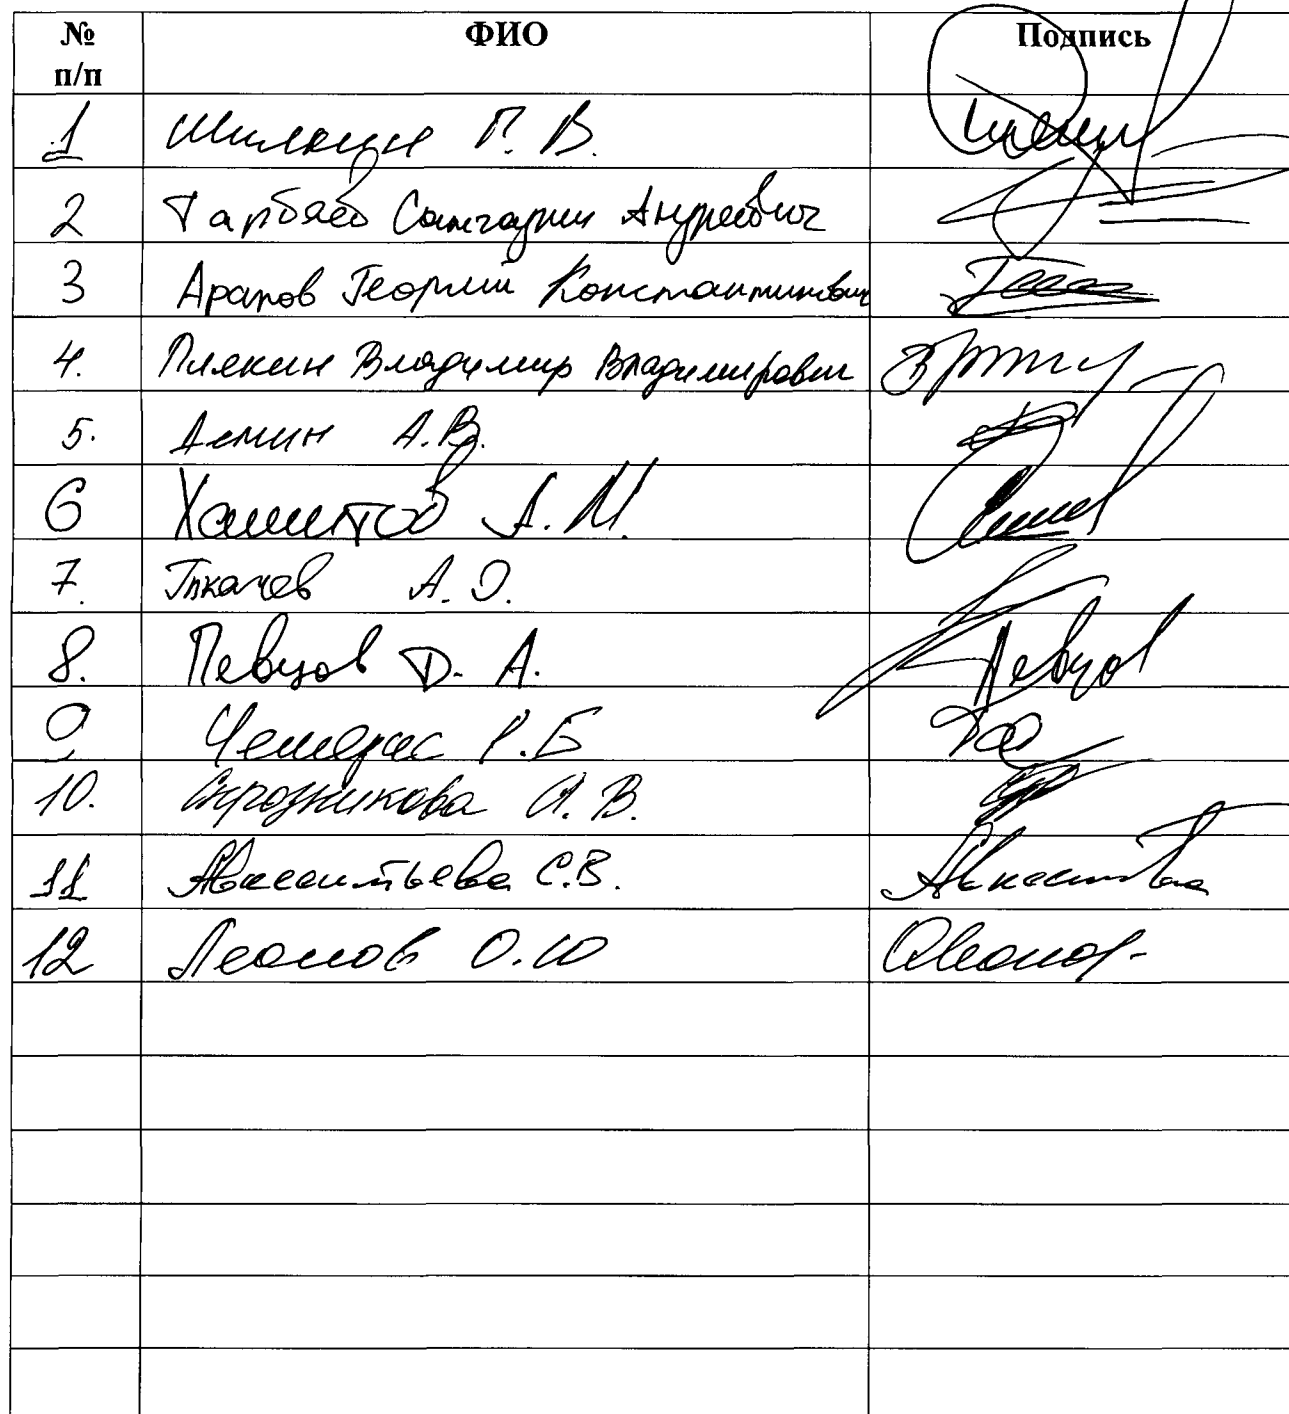 № п/п ФИО Подпись
1 Шилкин Г. В.
2 Тарбаев Сангаджи Андреевич
3 Арапов Георгий Константинович
4. Плякин Владимир Владимирович
5. Демин А.В.
6 Хамитов А.М.
7. Ткачев А.О.
8. Певцов Д. А. Певцов
9 Чемерис Р.Б
10. Дрозникова А. В.
11 Авксентьева С.В.
12 Леонов О.Ю